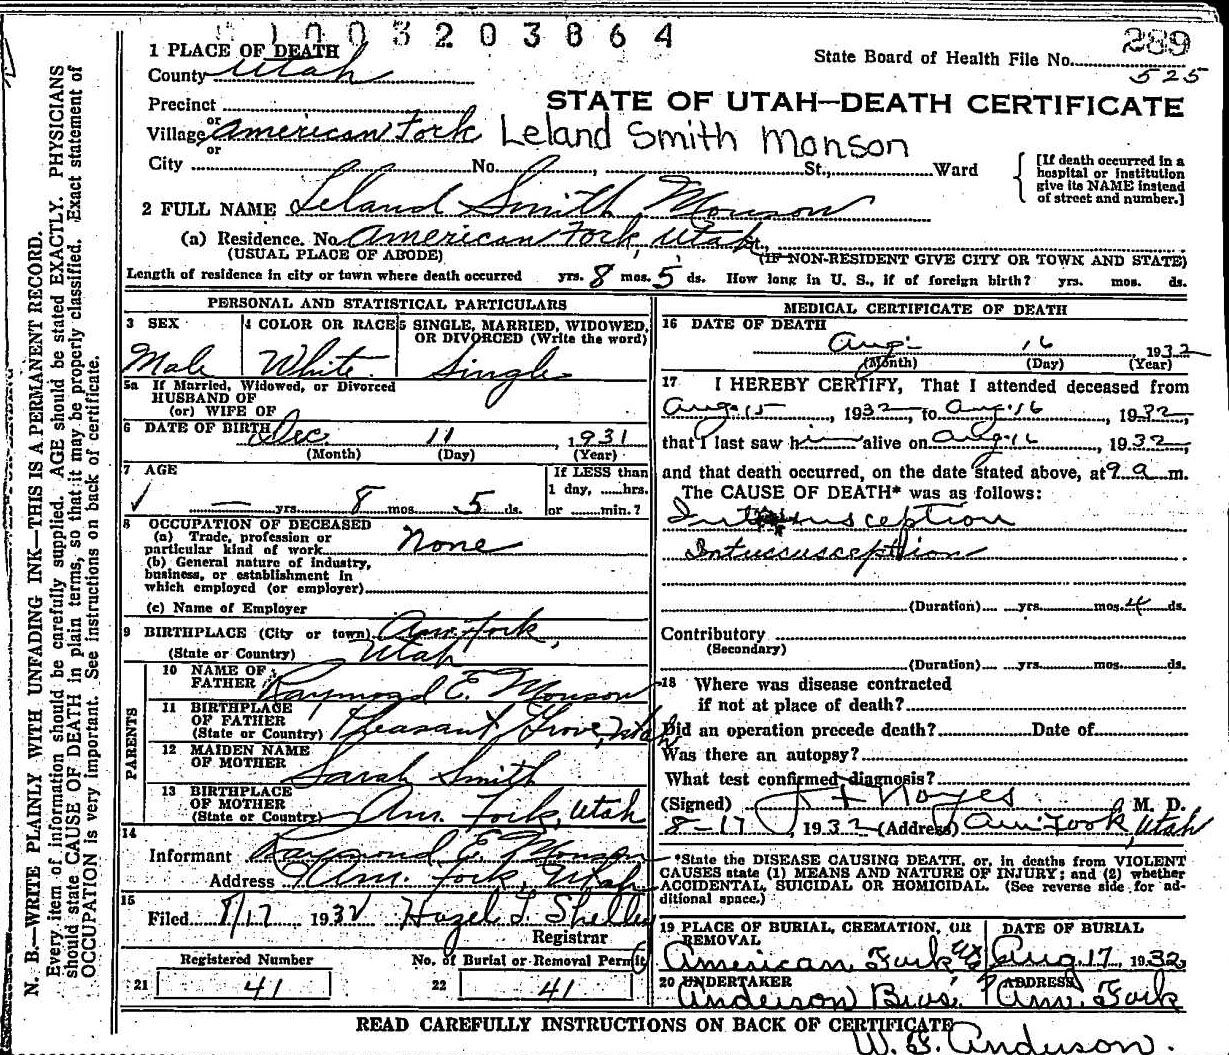 0 1 0 0 3 2 0 3 8 6 4
289
State Board of Health File No.
525
1 PLACE OF DEATH
County Utah
STATE OF UTAH—DEATH CERTIFICATE
Precinct
or
Village American Fork Leland Smith Monson
or
City No. , St., Ward
[If death occurred in a
hospital or institution
give its NAME instead
of street and number.]
2 FULL NAME Leland Smith Monson
(a) Residence. No. American Fork, Utah St.,
(USUAL PLACE OF ABODE) (IF NON-RESIDENT GIVE CITY OR TOWN AND STATE)
Length of residence in city or town where death occurred yrs. 8 mos. 5 ds. How long in U. S., if of foreign birth? yrs. mos. ds.
PERSONAL AND STATISTICAL PARTICULARS
3 SEX 4 COLOR OR RACE 5 SINGLE, MARRIED, WIDOWED,
OR DIVORCED (Write the word)
Male White Single
5a If Married, Widowed, or Divorced
HUSBAND OF
(or) WIFE OF
6 DATE OF BIRTH Dec. 11 , 1931
(Month) (Day) (Year)
7 AGE If LESS than
1 day, ......hrs.
— yrs. 8 mos. 5 ds. or ......min.?
8 OCCUPATION OF DECEASED
(a) Trade, profession or
particular kind of work None
(b) General nature of industry,
business, or establishment in
which employed (or employer)
(c) Name of Employer
9 BIRTHPLACE (City or town) Am. Fork,
(State or Country) Utah
PARENTS
10 NAME OF
FATHER Raymond E. Monson
11 BIRTHPLACE
OF FATHER
(State or Country) Pleasant Grove, Utah
12 MAIDEN NAME
OF MOTHER Sarah Smith
13 BIRTHPLACE
OF MOTHER
(State or Country) Am. Fork, Utah
14
Informant Raymond E. Monson
Address Am. Fork, Utah
15
Filed 8/17 1932 Hazel T. Shelley
Registrar
Registered Number No. of Burial or Removal Permit
21 41 22 41
MEDICAL CERTIFICATE OF DEATH
16 DATE OF DEATH
Aug. 16 1932
(Month) (Day) (Year)
17 I HEREBY CERTIFY, That I attended deceased from
Aug. 15 , 1932 to Aug. 16 , 1932,
that I last saw him alive on Aug. 16 , 1932,
and that death occurred, on the date stated above, at 9 a m.
The CAUSE OF DEATH* was as follows:
Intussusception
(Duration) yrs. mos. 4 ds.
Contributory
(Secondary)
(Duration) yrs. mos. ds.
18 Where was disease contracted
if not at place of death?
Did an operation precede death? Date of
Was there an autopsy?
What test confirmed diagnosis?
(Signed) Noyes M. D.
8-17 , 1932 (Address) Am Fork, Utah
*State the DISEASE CAUSING DEATH, or, in deaths from VIOLENT
CAUSES state (1) MEANS AND NATURE OF INJURY; and (2) whether
ACCIDENTAL, SUICIDAL OR HOMICIDAL. (See reverse side for ad-
ditional space.)
19 PLACE OF BURIAL, CREMATION, OR
REMOVAL DATE OF BURIAL
American Fork Ut Aug. 17 1932
20 UNDERTAKER ADDRESS
Anderson Bros. Am. Fork
READ CAREFULLY INSTRUCTIONS ON BACK OF CERTIFICATE
Anderson.
N. B.—WRITE PLAINLY WITH UNFADING INK—THIS IS A PERMANENT RECORD.
Every item of information should be carefully supplied. AGE should be stated EXACTLY. PHYSICIANS
should state CAUSE OF DEATH in plain terms, so that it may be properly classified. Exact statement of
OCCUPATION is very important. See instructions on back of certificate.